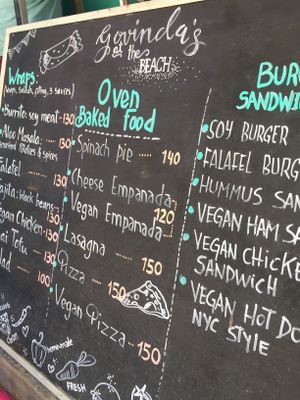 Govinda's
at the
BEACH
Wraps:
Burrito: soy meat - 130
Aloo Masala:
130
Falafel
130
Fajita: black beans - 130
Vegan Chicken: 130
Thai Tofu: 130
100
Oven
Baked food
Spinach pie ..... 140
Cheese Empanada
Vegan Empanada ... 120
Lasagna ..... 150
Pizza ..... 150
Vegan Pizza ... 150
BUR
SANDWI
SOY BURGER
FALAFEL BURG
HUMMUS SAN
VEGAN HAM SA
VEGAN CHICKE
SANDWICH
VEGAN HOT DO
NYC STYLE
Home-made
FRESH